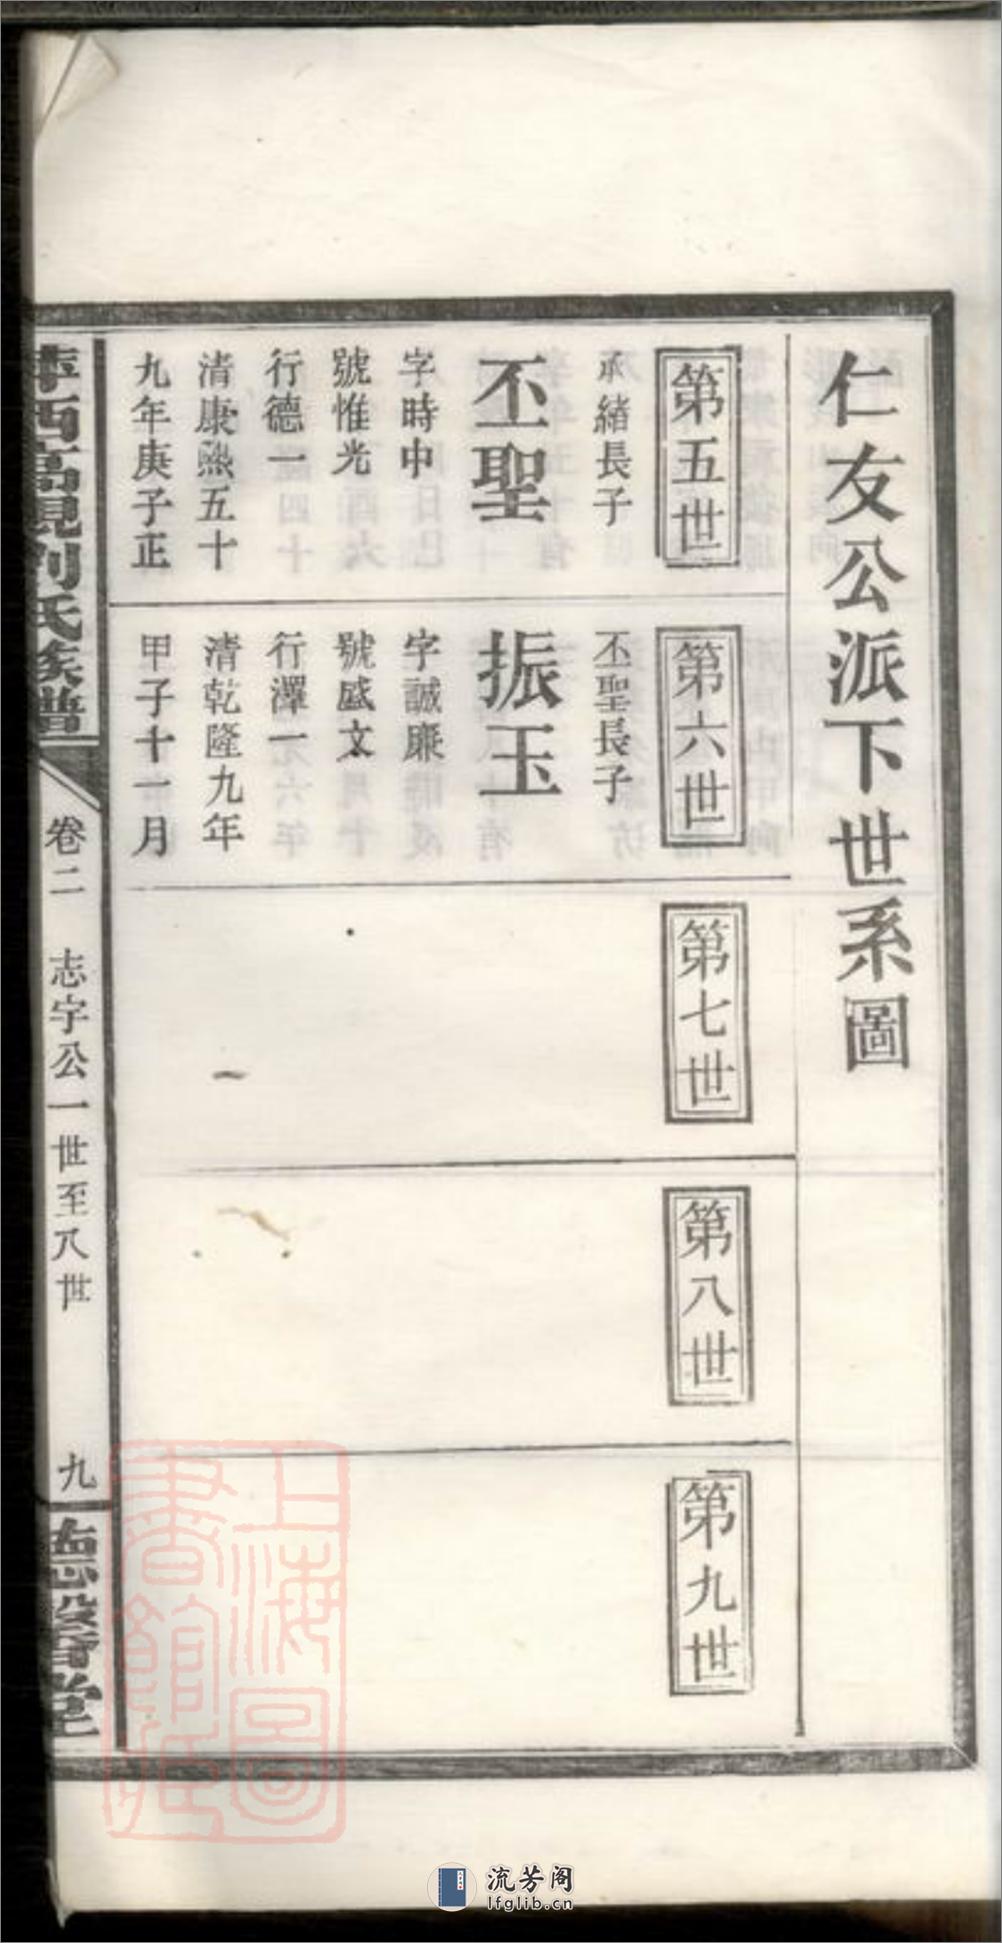 仁友公派下世系圖
第五世
承緒長子
丕聖
字時中
號惟光
行德一
清康熙五十
九年庚子正
第六世
丕聖長子
振玉
字誠廉
號盛文
行澤一
清乾隆九年
甲子十一月
第七世
第八世
第九世
萍西高視劉氏族譜
卷二 志字公一世至八世
九
德馨堂
上海圖
書館藏
流芳阁
lfglib.cn